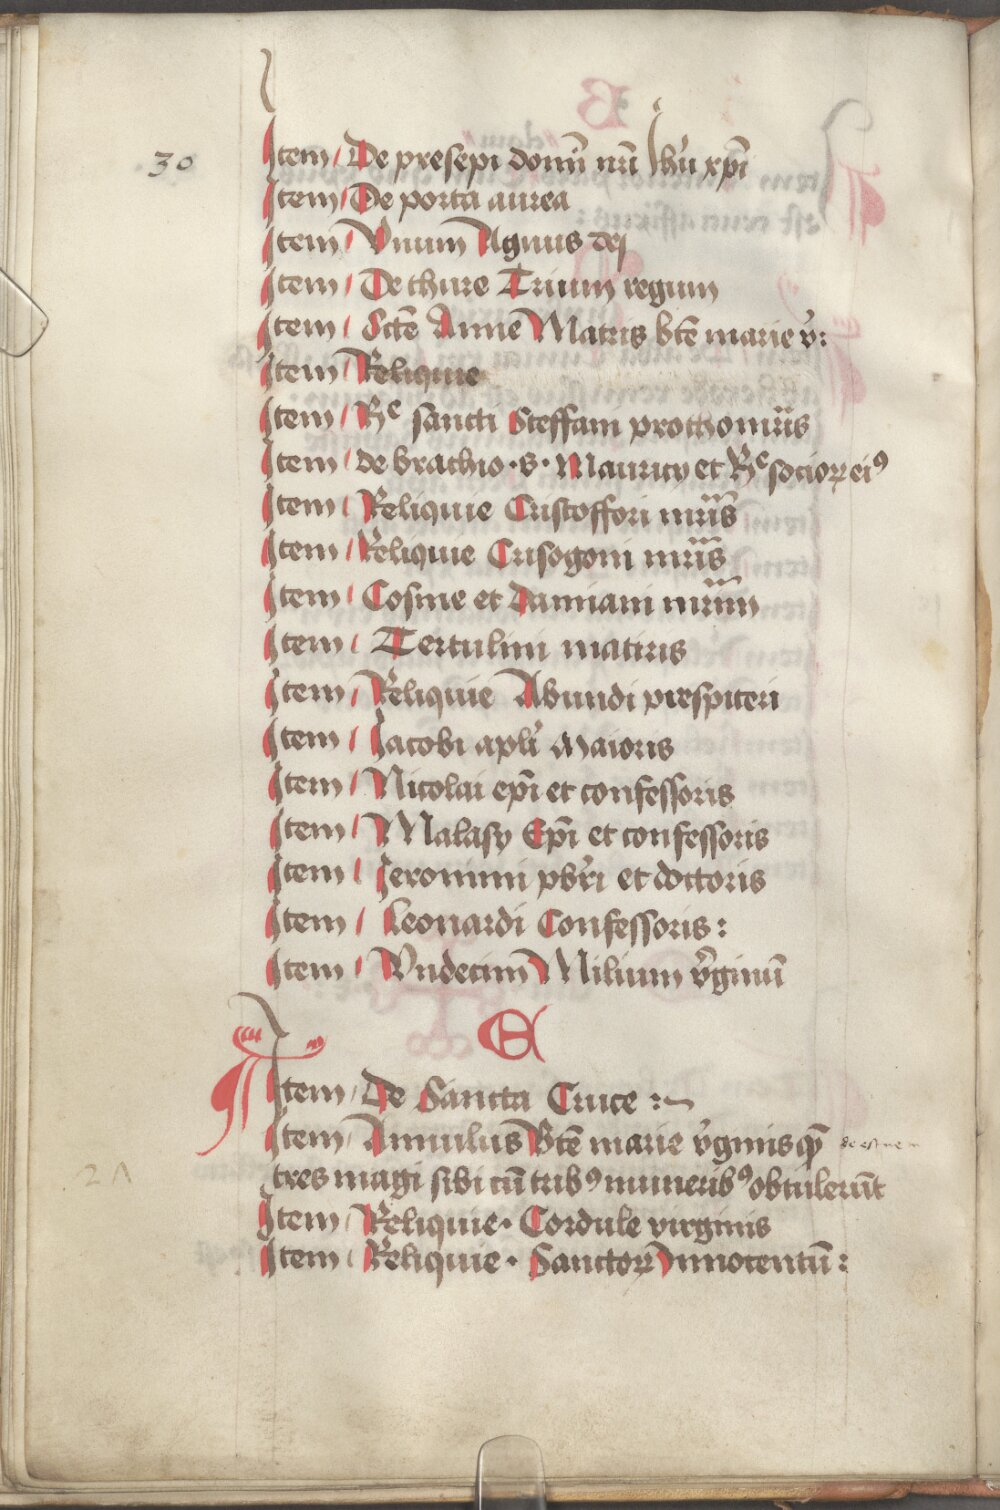 30
Item De presepi domī nr̄i Ihū xp̄i
Item De porta aurea
Item Vnum Agnus dej
Item De thure Trium regum
Item Sctē Anne Matris btē marie v̄:
Item Reliquie
Item Rᵉ sancti Steffani prothomr̄is
Item de brachio ·S· Mauricij et Rᵉ socioꝝ eiꝰ
Item Reliquie Cristoffori mr̄is
Item Reliquie Crisogoni mr̄is
Item Cosme et Damiani mr̄m
Item Tertulini matiris
Item Reliquie Abundi prespiteri
Item Jacobi apl̄i Maioris
Item Nicolai ep̄i et confessoris
Item Malasy Ep̄i et confessoris
Item Jeronimi pbr̄i et doctoris
Item Leonardi Confessoris:
Item Vndecim Milium v̄ginū
Item De Sancta Cruce :~
Item Annulus Btē marie v̄ginis qꝫ
tres magi sibi cū tribꝰ muneribꝰ obtulerūt
Item Reliquie· Cordule virginis
Item Reliquie· Sanctoꝝ Innocentū: